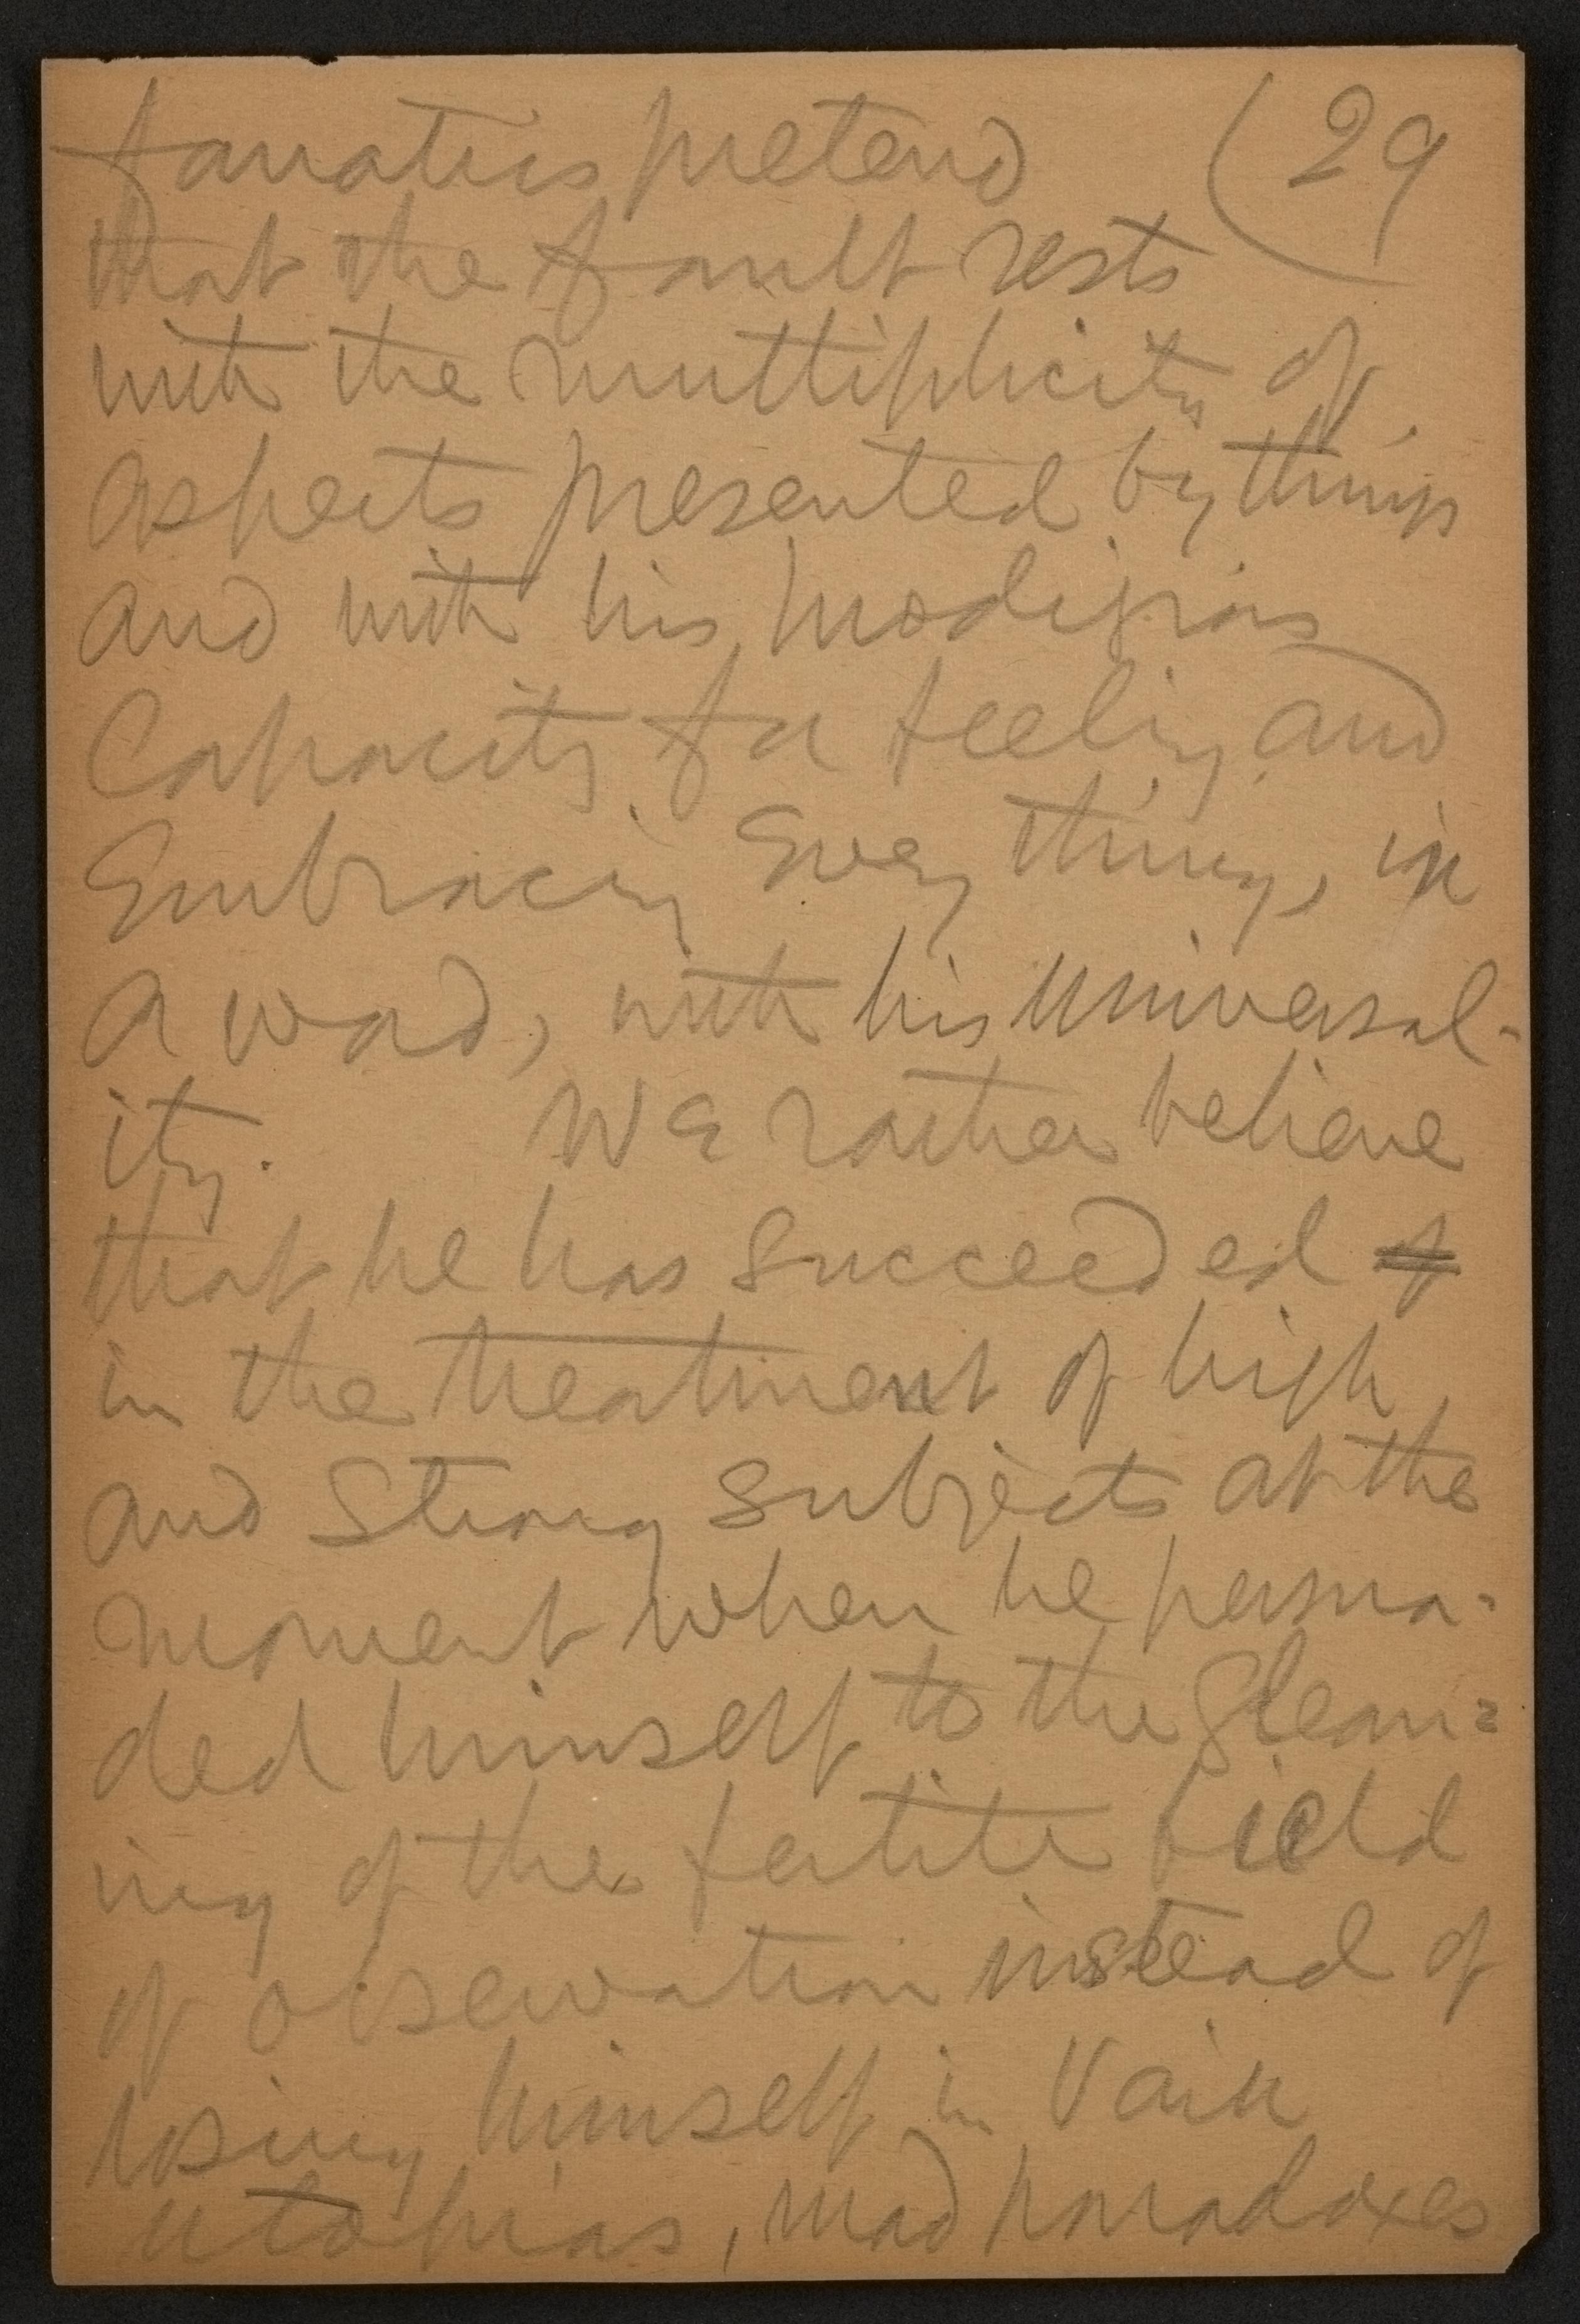 fanatics pretend (29
that the fault rests
with the multiplicity of
aspects presented by things
and with his prodigious
Capacity for feeling and
Embracing Everything, in
a word, with his universal-
ity. We rather believe
that he has succeeded of
in the treatment of high
and Strong subjects at the
moment when he persua-
ded himself to the glean=
ing of the fertile field
of observation instead of
losing himself in Vain
utopias, mad paradoxes